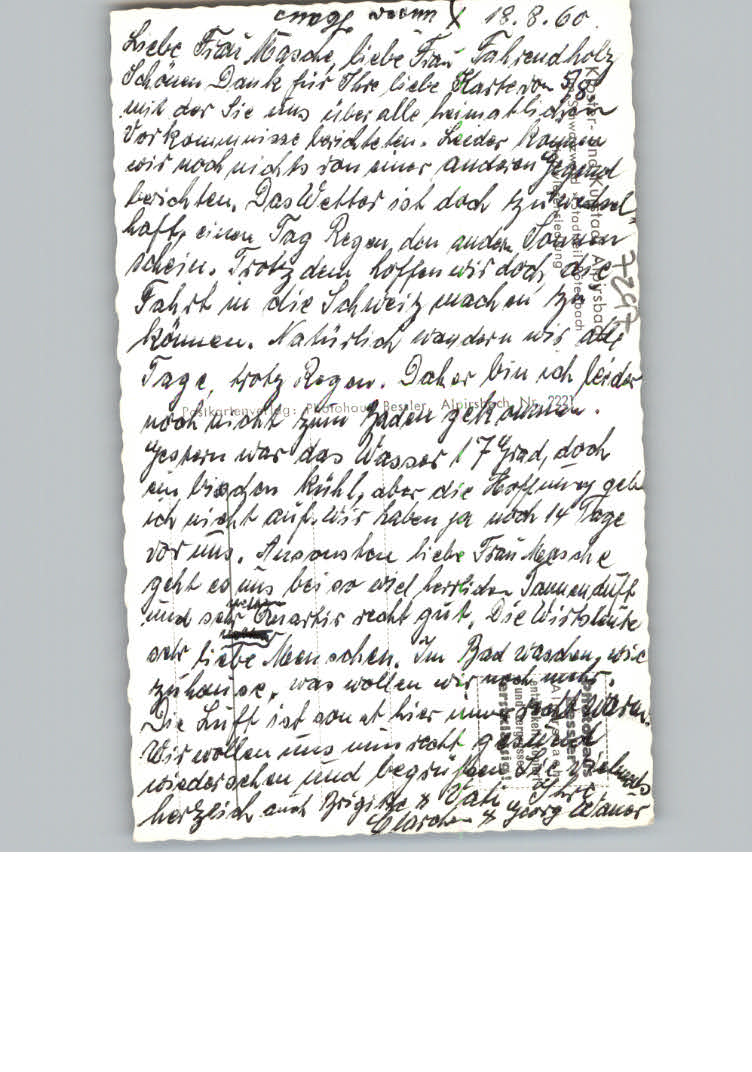 18.8.60.
Liebe Frau Masche, liebe Frau Fahrendholz
Schönen Dank für Ihre liebe Karte von 5/8.
mit der Sie uns über alle heimatlichen
Vorkommnisse berichteten. Leider können
wir noch nichts von einer anderen Gegend
berichten. Das Wetter ist doch zu wechsel-
haft, einen Tag Regen, den andern Sonnen
schein. Trotzdem hoffen wir doch, die
Fahrt in die Schweiz machen zu
können. Natürlich wandern wir alle
Tage, trotz Regen. Daher bin ich leider
noch nicht zum Baden gekommen.
Gestern war das Wasser 17 Grad, doch
ein bischen kühl, aber die Hoffnung geb
ich nicht auf. Wir haben ja noch 14 Tage
vor uns. Ansonsten liebe Frau Masche
geht es uns bei so viel herrlichen Tannenduft
und sehr Quartir recht gut. Die Wirtsleute
sehr liebe Menschen. Im Bad waschen, wie
zuhause, was wollen wir noch mehr.
Die Luft ist sonst hier immer recht warm.
Wir wollen uns nun recht gesund
wiedersehen und begrüßen Sie
herzlich auch Brigitte & Vati Ihre
Georg
Postkartenverlag: Photohaus Bessler, Alpirsbach Nr. 2221
Kloster- und Kurstadt Alpirsbach
7297
Photohaus
Bessler
Alpirsbach
entwickelt, kopiert
und vergrössert
erstklassig!